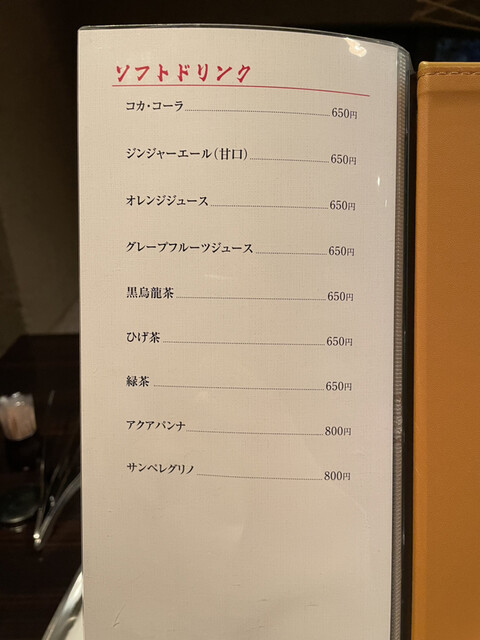 ソフトドリンク
コカ・コーラ 650円
ジンジャーエール（甘口） 650円
オレンジジュース 650円
グレープフルーツジュース 650円
黒烏龍茶 650円
ひげ茶 650円
緑茶 650円
アクアパンナ 800円
サンペレグリノ 800円